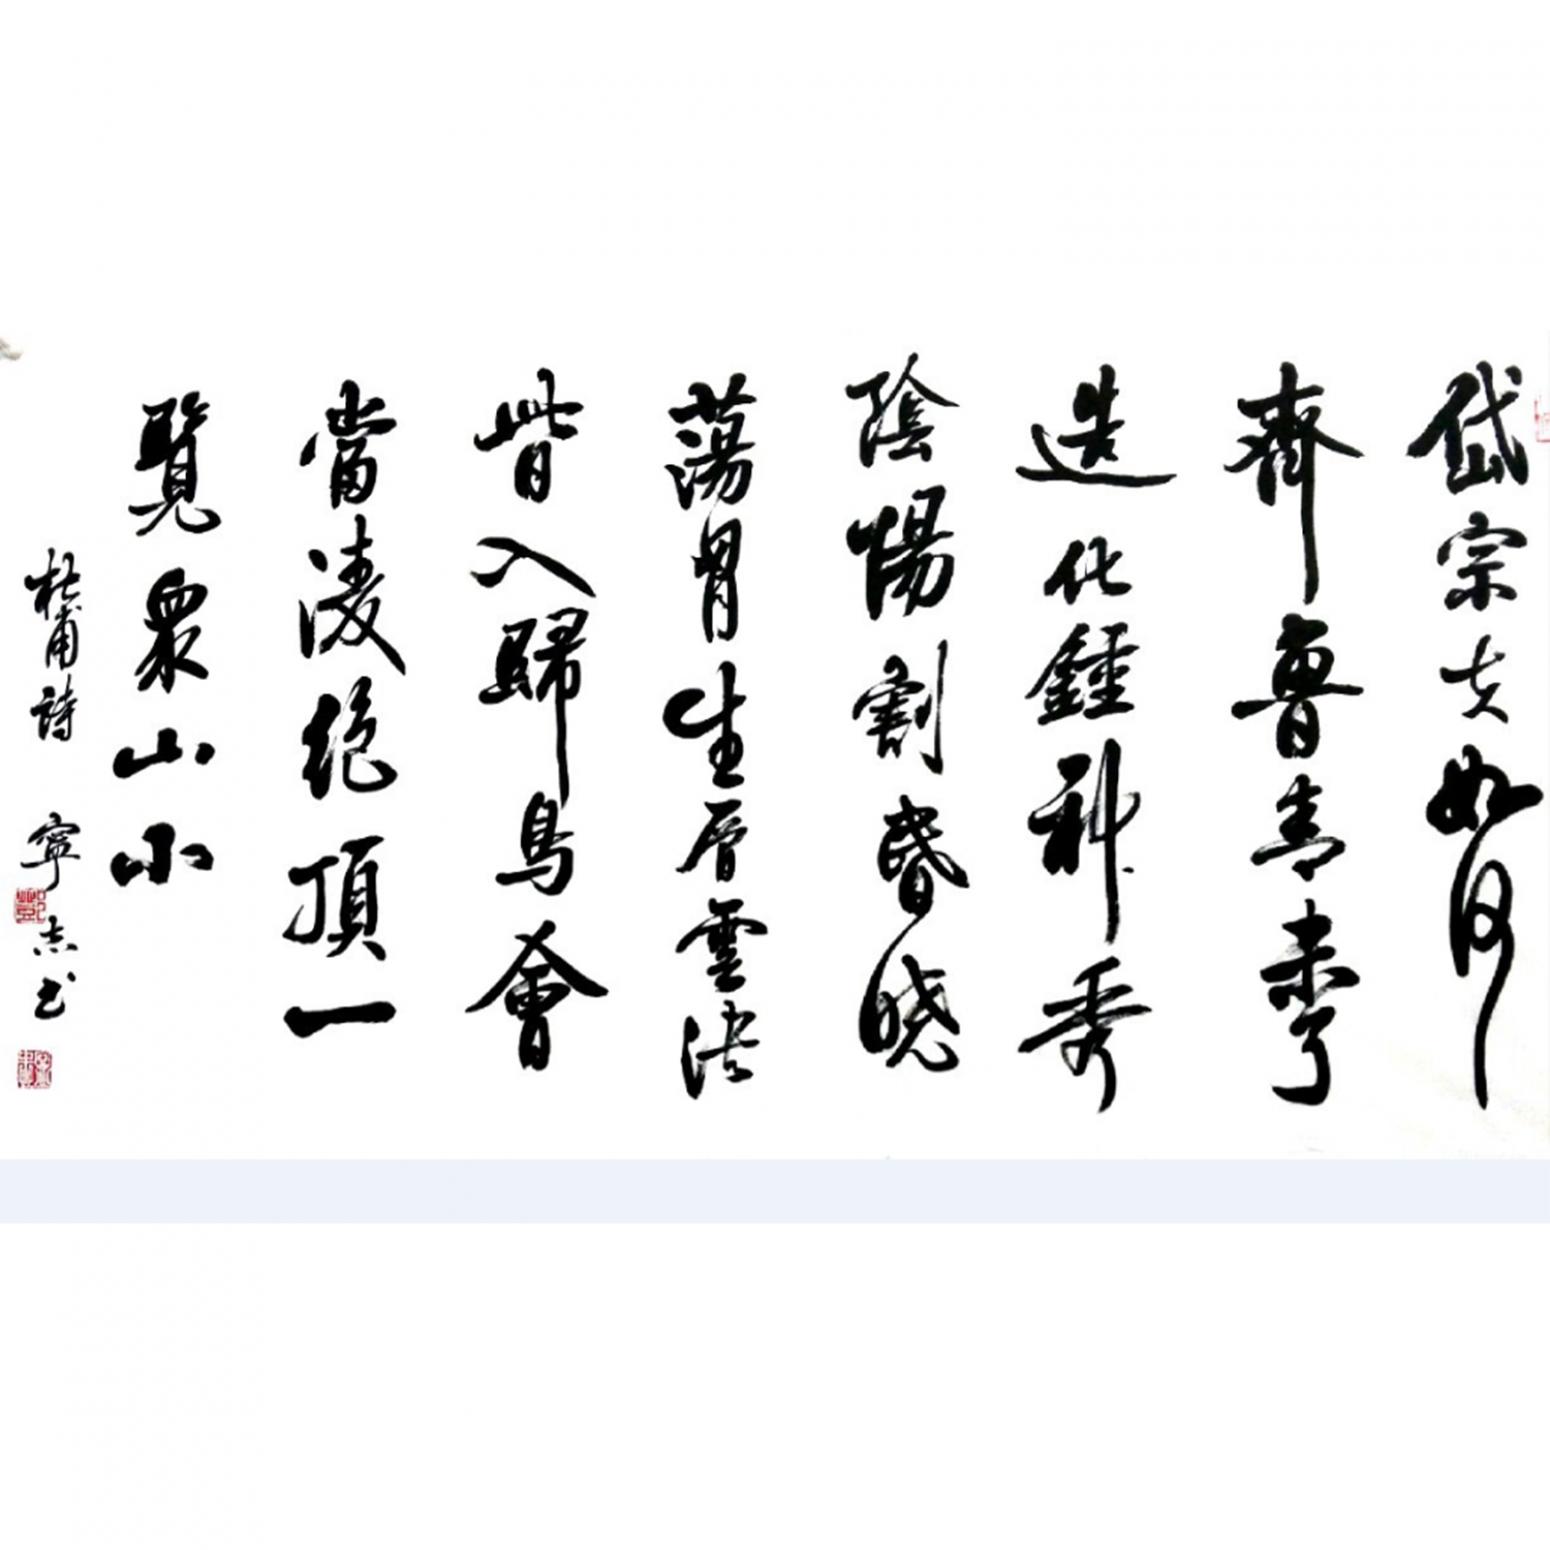 岱宗夫如何
齊魯青未了
造化鍾神秀
陰陽割昏曉
蕩胷生層雲決
眥入歸鳥會
當凌絕頂一
覽眾山小
杜甫詩 寧志书